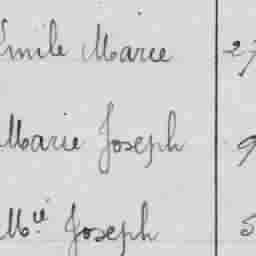 Emile Marie 27
Marie Joseph 9
Mie Joseph 5